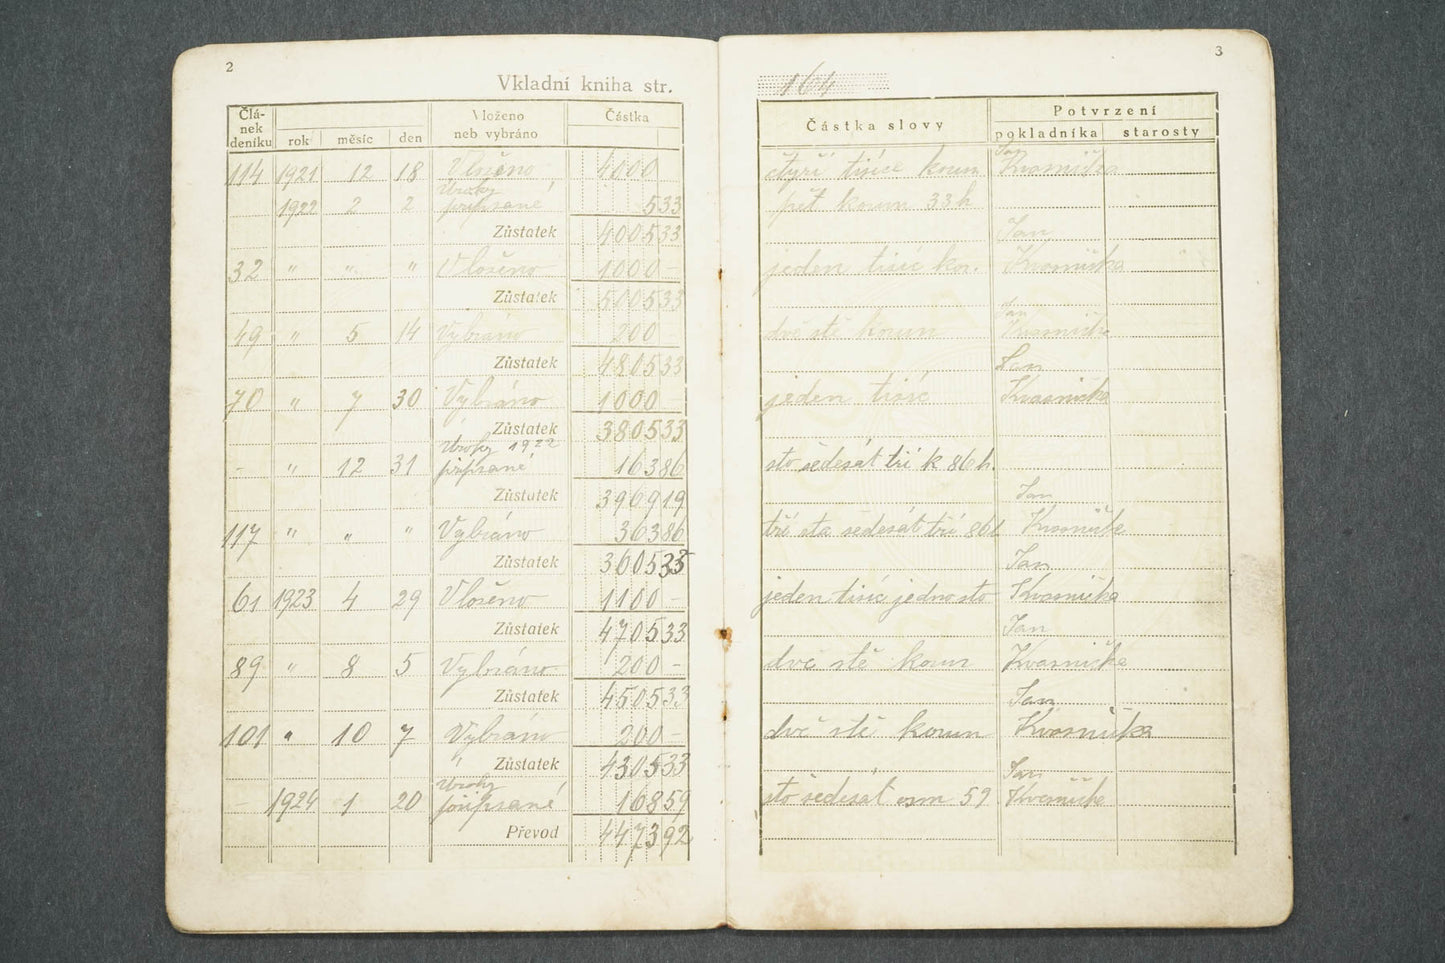 2
Vkladní kniha str.
Člá-
nek
deníku
rok
měsíc
den
Vloženo
neb vybráno
Částka
114 1921 12 18 Vloženo 4000
Úroky
1922 2 2 připsané 533
Zůstatek 400533
32 " " " Vloženo 1000 -
Zůstatek 500533
49 " 5 14 Vybráno 200 -
Zůstatek 480533
70 " 7 30 Vybráno 1000 -
Zůstatek 380533
Úroky 1922
- " 12 31 připsané 16386
Zůstatek 396919
117 " " " Vybráno 36386
Zůstatek 360533
61 1923 4 29 Vloženo 1100 -
Zůstatek 470533
89 " 8 5 Vybráno 200 -
Zůstatek 450533
101 " 10 7 Vybráno 200 -
Zůstatek 430533
Úroky
- 1924 1 20 připsané 16859
Převod 447392
3
164
Částka slovy
Potvrzení
pokladníka
starosty
čtyři tisíce korun Jan Kvasnička
pět korun 33 h
Jan
jeden tisíc kor. Kvasnička
Jan
dvě stě korun Kvasnička
Jan
jeden tisíc Kvasnička
sto šedesát tři k 86 h.
Jan
tři sta šedesát tři 86 h Kvasnička
Jan
jeden tisíc jedno sto Kvasnička
Jan
dvě stě korun Kvasnička
Jan
dvě stě korun Kvasnička
Jan
sto šedesát osm 59 Kvasnička